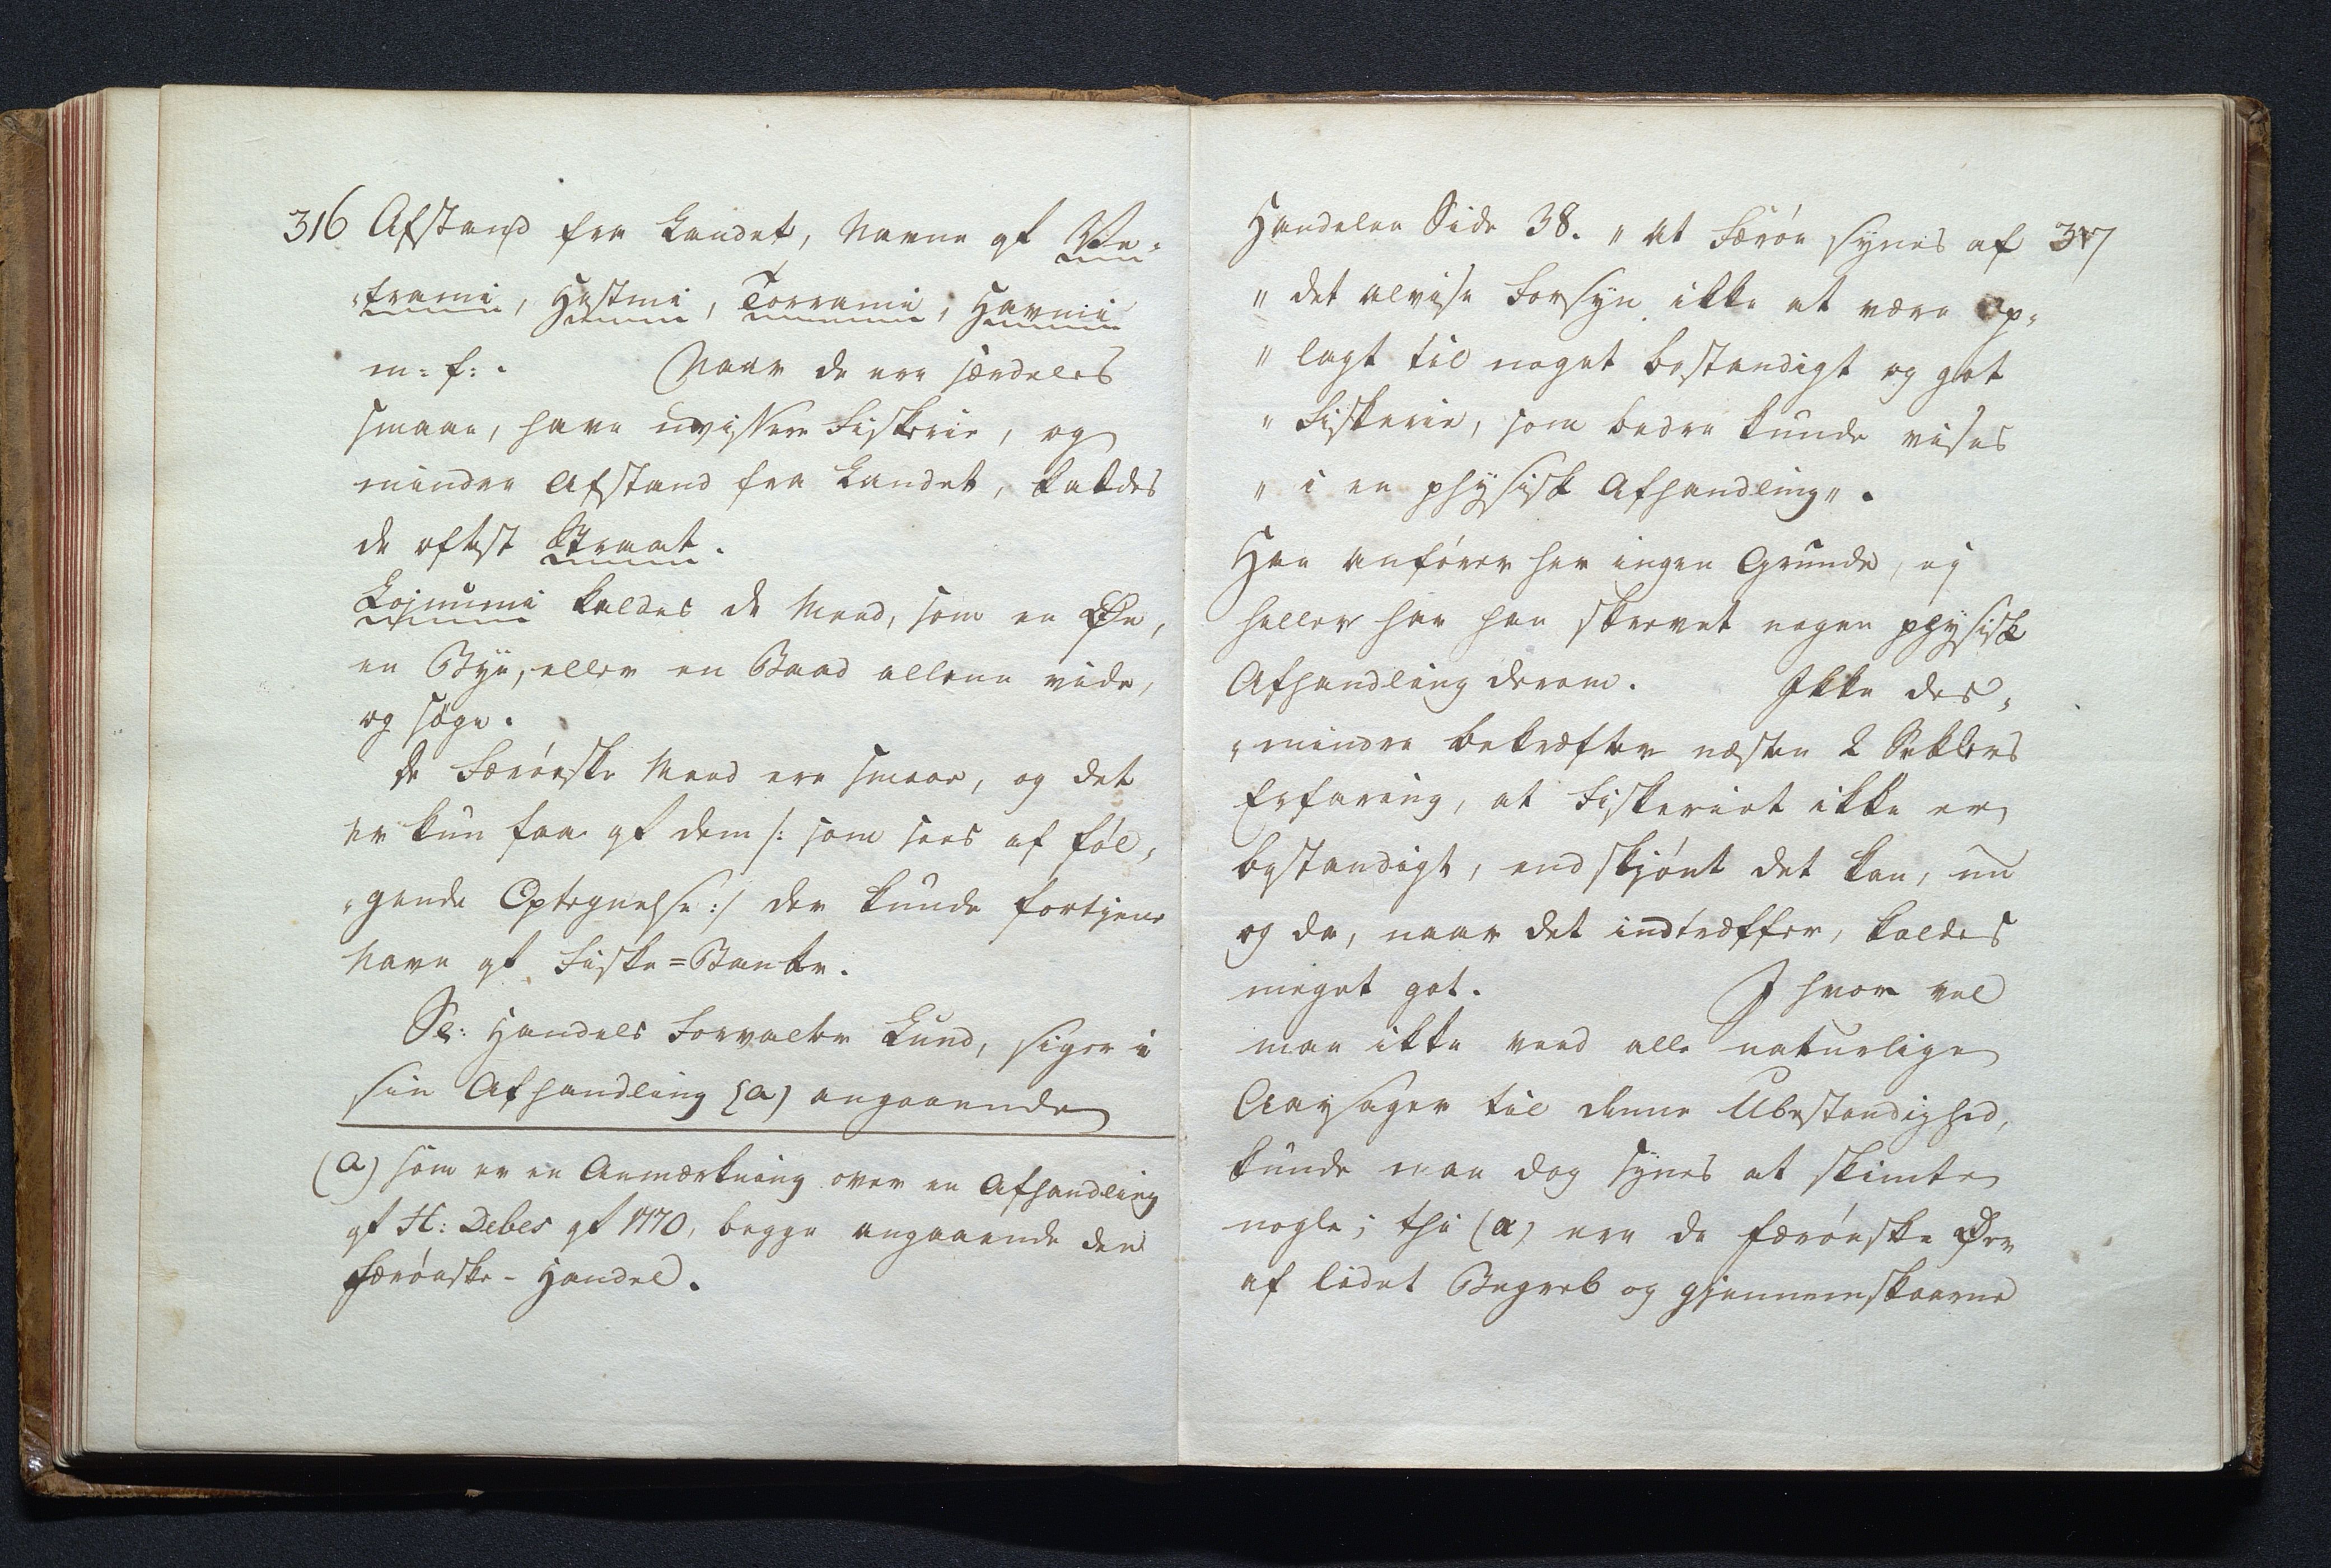 316 Afstand fra Landet, Navne af
trami, Hestmi, Torrami, Havnii
m: f: . Naar de ere særdeles
smaae, have uvissere Fiskerie, og
mindre Afstand fra Landet, kaldes
de oftest Straat.
Lojnumi kaldes de Meed, som en Øe,
en Bye, eller en Baad allene vide,
og søge.
De Færøeske Meed ere smaae, og det
er kun faa af dem /: som sees af føl,
„gende Optegnelse :/ der kunde fortjene
Navn af Fiske=Banke.
Sl: Handels Forvalter Lund, siger i
sin Afhandling (a) angaaende
(a) som er en Anmærkning over en Afhandling
af H: Debes af 1770, begge angaaende den
færøeske - Handel.
Handelen Side 38. „ at Færøe synes af 317
„ det alvise Forsyn ikke at være op,
„ lagt til noget bestandigt og got
„ Fiskerie, som bedre kunde vises
„ i en physisk Afhandling„ .
Han anfører her ingen Grunde, ej
heller har han skrevet nogen physisk
Afhandling derom. Ikke des,
„mindre bekræfter næsten 2 Seklers
Erfaring, at Fiskeriet ikke er
bestandigt, endskjønt det kan, nu
og da, naar det indtræffer, kaldes
meget got. I hvor vel
man ikke veed alle naturlige
Aarsager til denne Ubestandighed,
kunde man dog synes at skimte
nogle; thi (a) ere de færøeske Øer
af lidet Begreb og gjennemskaarne